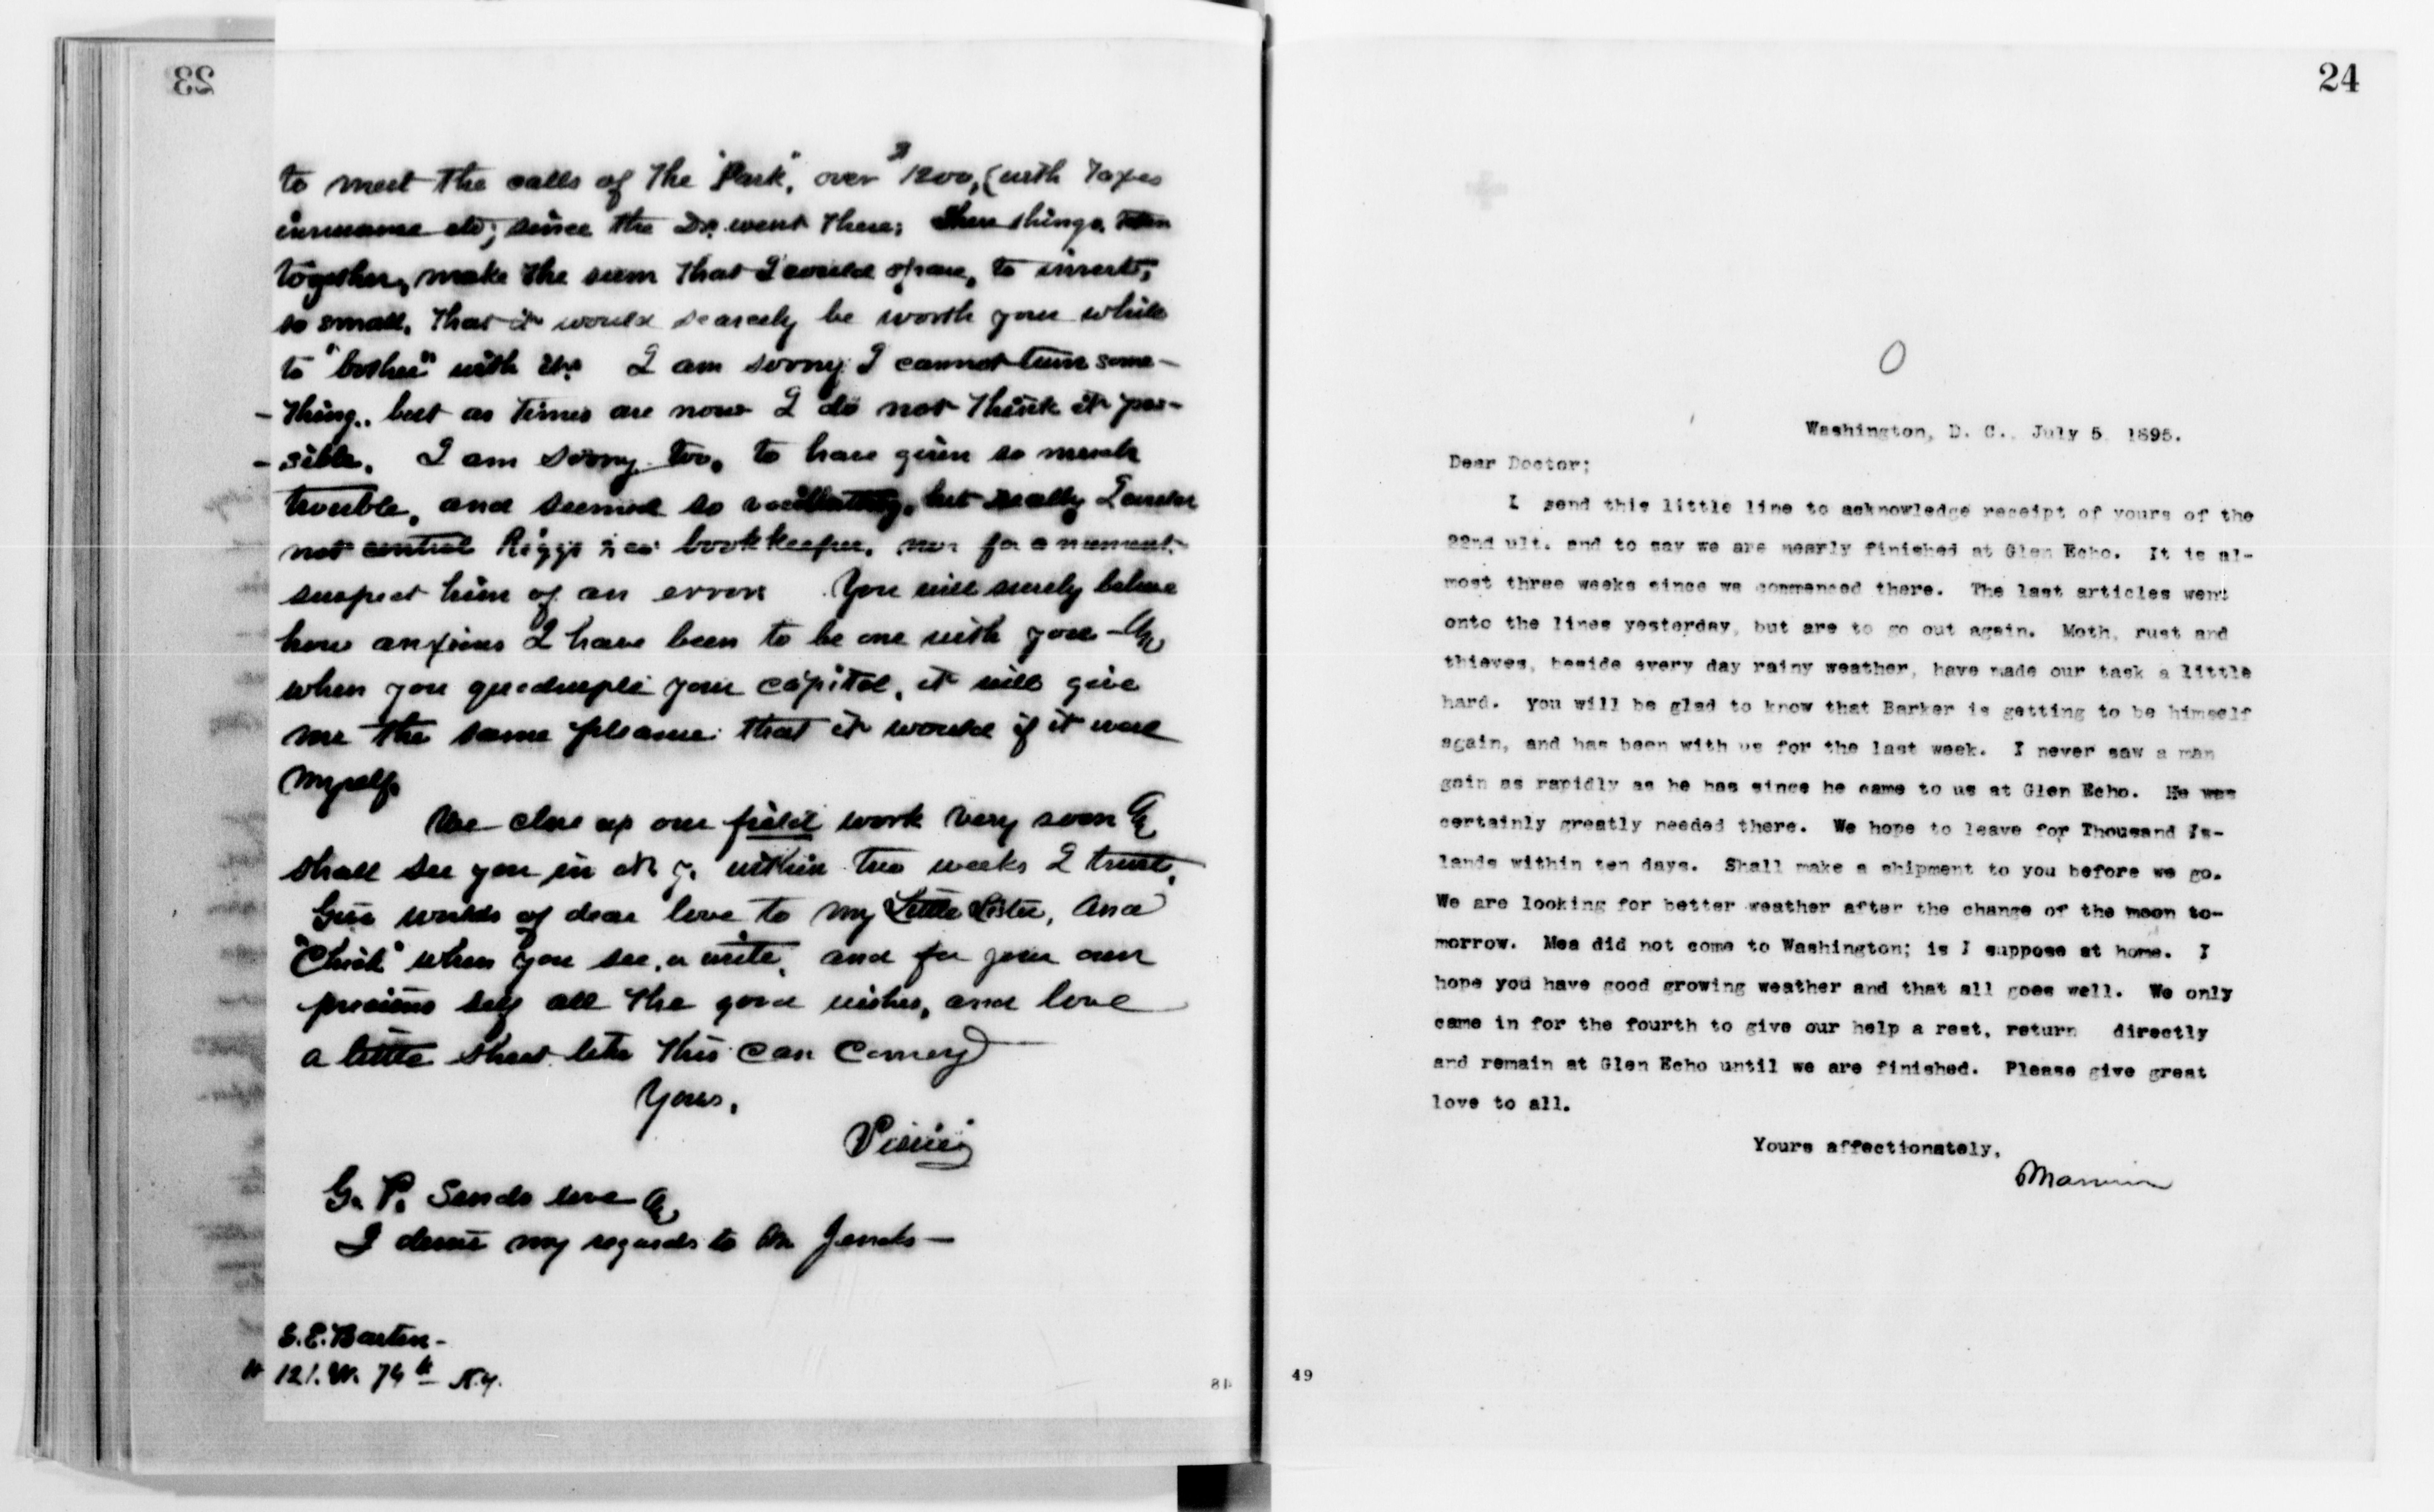 23
to meet the calls of the "Park", over $1200, (with Taxes
insurance etc; since the Dr. went there; these things, taken
together, make the sum that I could spare, to invest,
so small, that it would scarcely be worth your while
to "bother" with it. I am sorry I cannot turn some-
-thing, but as times are now I do not think it pos-
-sible. I am sorry too, to have given so much
trouble, and seemed so vacillating, but really I could
not control Riggs & co bookkeeper, nor for a moment
suspect him of an error. You will surely believe
how anxious I have been to be one with you - &
when you quadruple your capitol, it will give
me the same pleasure that it would if it were
myself.
We close up our field work very soon &
shall see you in N. Y. within two weeks I trust.
Give worlds of dear love to my Little Sister, and
"Chick" when you see, or write, and for your own
precious self all the good wishes, and love
a little sheet like this can convey
Yours,
G. P. Sends love &
I desire my regards to Mr Jencks -
S. E. Barton -
121. W. 74th N.Y.
48
24
Washington, D. C., July 5, 1895.
Dear Doctor;
I send this little line to acknowledge receipt of yours of the
22nd ult. and to say we are nearly finished at Glen Echo. It is al-
most three weeks since we commenced there. The last articles went
onto the lines yesterday, but are to go out again. Moth, rust and
thieves, beside every day rainy weather, have made our task a little
hard. you will be glad to know that Barker is getting to be himself
again, and has been with us for the last week. I never saw a man
gain as rapidly as he has since he came to us at Glen Echo. He was
certainly greatly needed there. We hope to leave for Thousand Is-
lands within ten days. Shall make a shipment to you before we go.
We are looking for better weather after the change of the moon to-
morrow. Mea did not come to Washington; is I suppose at home. I
hope you have good growing weather and that all goes well. We only
came in for the fourth to give our help a rest, return directly
and remain at Glen Echo until we are finished. Please give great
love to all.
Yours affectionately,
49